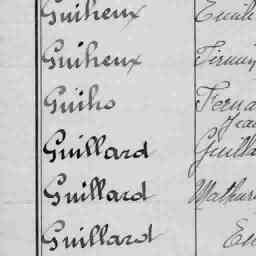 Guiheux
Guiheux
Guiho Ferna
Jea
Guillard Guilla
Guillard Mathur
Guillard